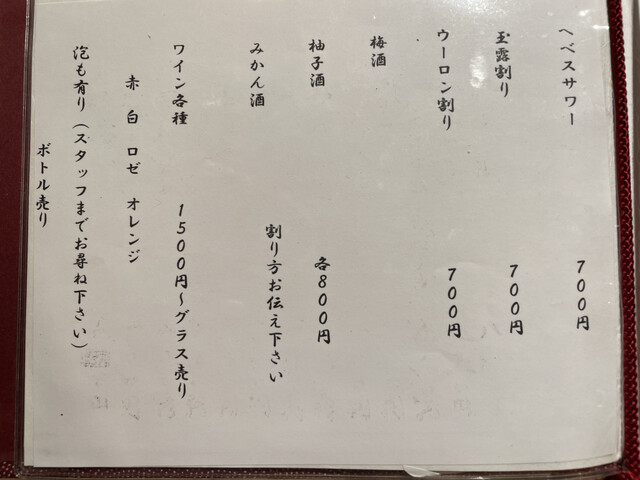 ヘベスサワー　700円
玉露割り　700円
ウーロン割り　700円
梅酒
柚子酒　各800円
みかん酒　割り方お伝え下さい
ワイン各種　1500円～グラス売り
赤　白　ロゼ　オレンジ
泡も有り（スタッフまでお尋ね下さい）
ボトル売り